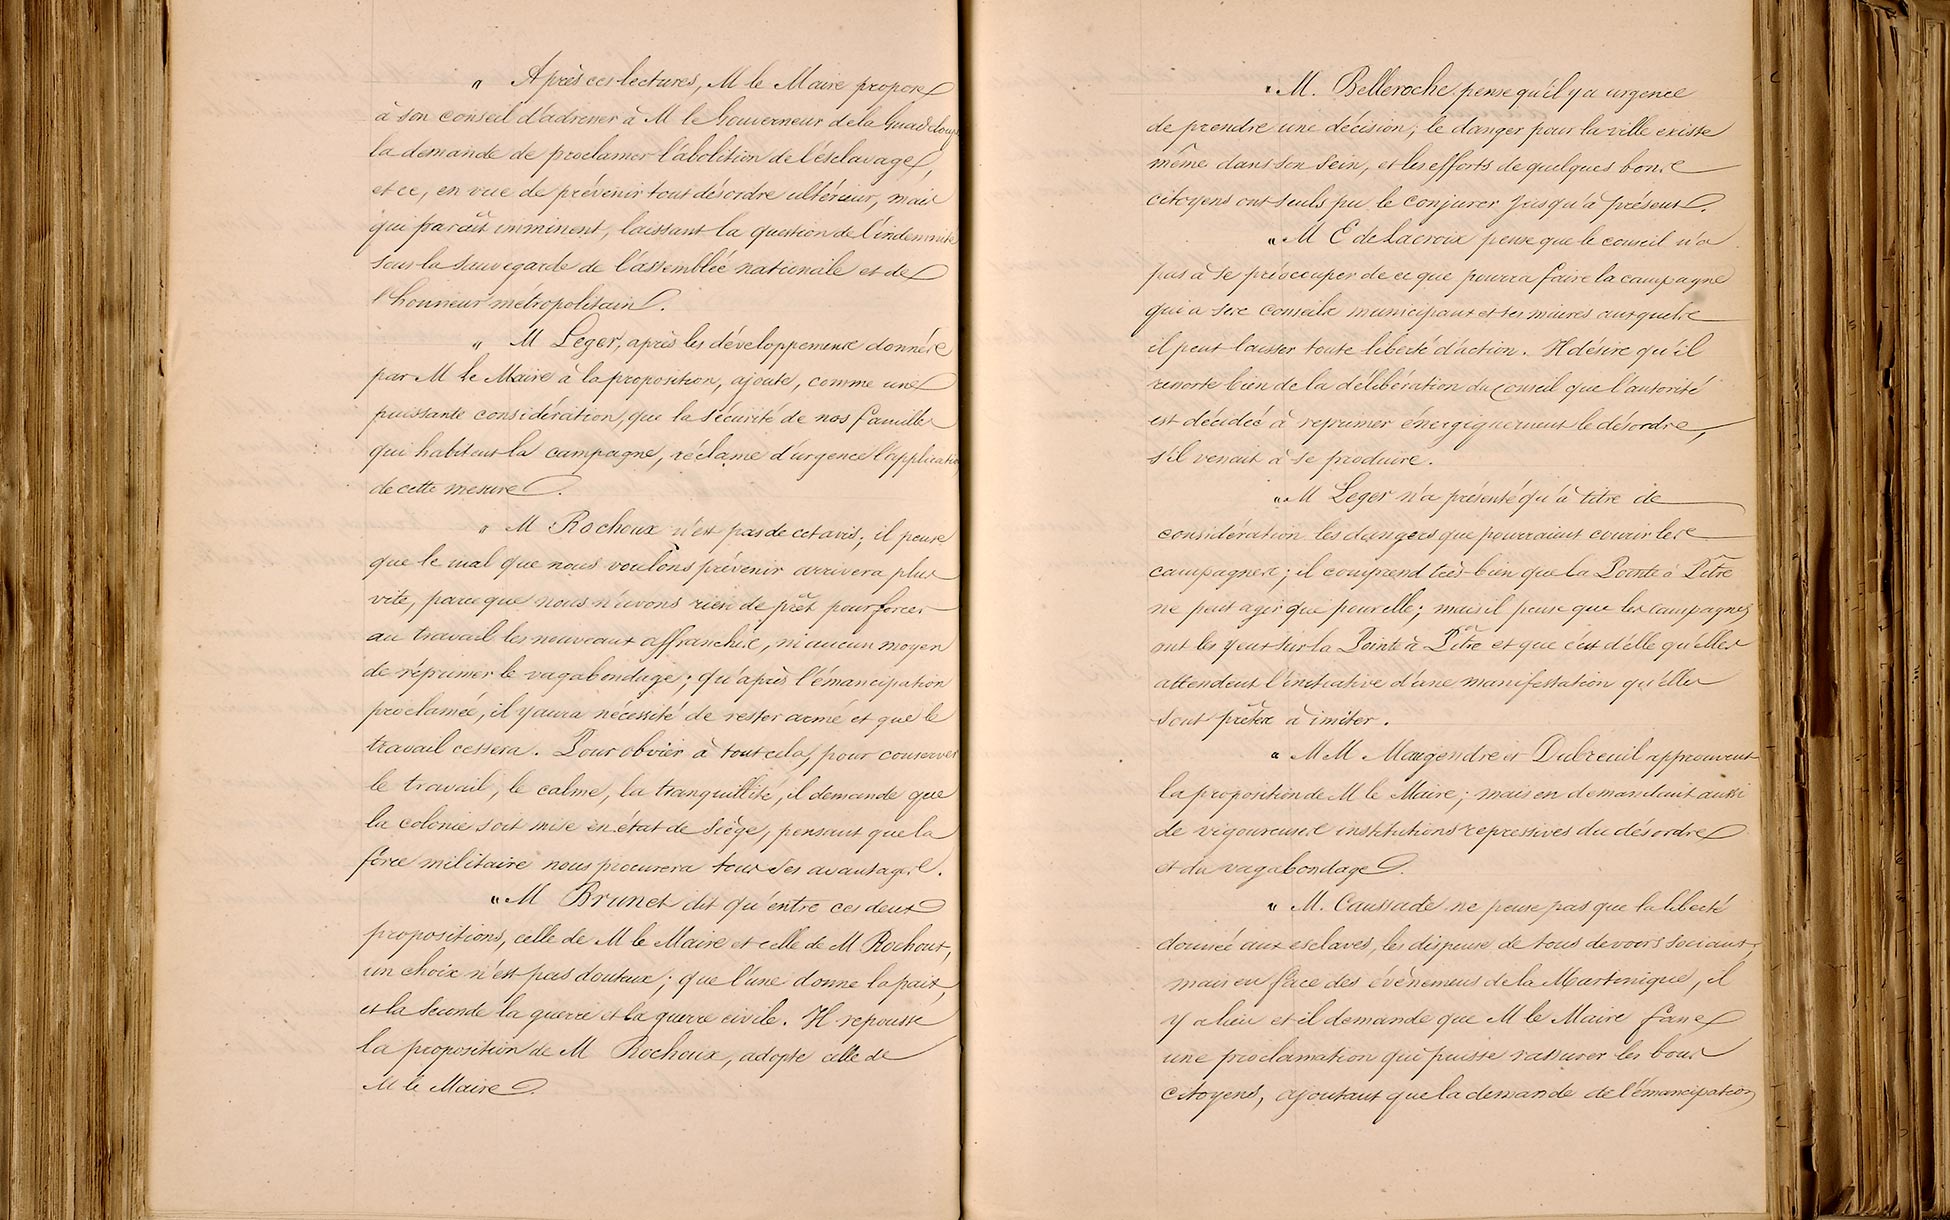 " Après ces lectures, M le Maire propose
à son conseil d'adresser à M le Gouverneur de la Guadeloupe
la demande de proclamer l'abolition de l'esclavage,
et ce, en vue de prévenir tout désordre ultérieur, mais
qui paraît imminent, laissant la question de l'indemnité
sous la sauvegarde de l'assemblée nationale et de
l'honneur métropolitain.
" M Leger, après les développements donnés
par M le Maire à la proposition, ajoute, comme une
puissante considération, que la sécurité de nos familles
qui habitent la campagne, réclame d'urgence l'application
de cette mesure.
" M Rochoux n'est pas de cet avis; il pense
que le mal que nous voulons prévenir arrivera plus
vite, parceque nous n'avons rien de prêt pour forcer
au travail les nouveaux affranchis, ni aucun moyen
de réprimer le vagabondage; qu'après l'émancipation
proclamée, il y aura nécessité de rester armé et que le
travail cessera. Pour obvier à tout cela, pour conserver
le travail, le calme, la tranquillité, il demande que
la colonie soit mise en état de siège, pensant que la
force militaire nous procurera tous ses avantages.
" M Brunet dit qu'entre ces deux
propositions, celle de M le Maire et celle de M Rochoux,
un choix n'est pas douteux; que l'une donne la paix,
et la seconde la guerre et la guerre civile. Il repousse
la proposition de M Rochoux, adopte celle de
M le Maire.
" M. Belleroche pense qu'il y a urgence
de prendre une décision; le danger pour la ville existe
même dans son sein, et les efforts de quelques bons
citoyens ont seuls pu le conjurer jusqu'à présent.
" M E de Lacroix pense que le conseil n'a
pas à se préoccuper de ce que pourra faire la campagne
qui a ses conseils municipaux et ses maires auxquels
il peut laisser toute liberté d'action. Il désire qu'il
ressorte bien de la délibération du Conseil que l'autorité
est décidée à reprimer énergiquement le désordre,
s'il venait à se produire.
" M Leger n'a présenté qu'à titre de
considération les dangers que pourraient courir les
campagnes; il comprend très-bien que la Pointe à Pitre
ne peut agir que pour elle; mais il pense que les campagnes
ont les yeux sur la Pointe à Pitre et que c'est d'elle qu'elles
attendent l'initiative d'une manifestation qu'elles
sont prêtes à imiter.
" M M Maugendre et Dubreuil approuvent
la proposition de M le Maire; mais en demandant aussi
de vigoureuses institutions repressives du désordre
et du vagabondage.
" M. Caussade ne pense pas que la liberté
donnée aux esclaves, les dispense de tous devoirs sociaux,
mais en face des évènemens de la Martinique, il
y a lieu et il demande que M le Maire fasse
une proclamation qui puisse rassurer les bons
citoyens, ajoutant que la demande de l'émancipation